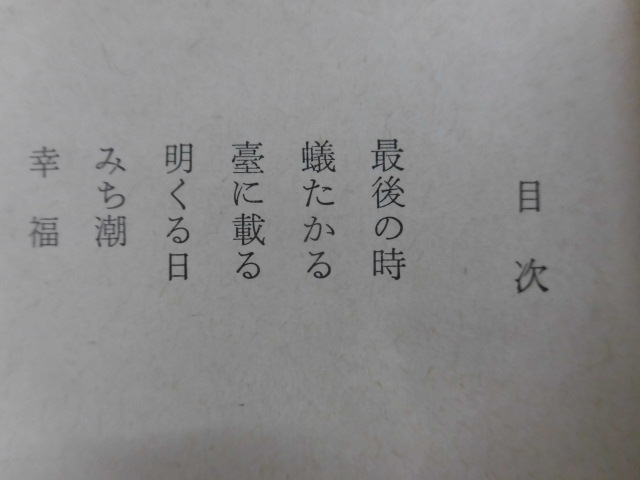 目次
最後の時
蟻たかる
臺に載る
明くる日
みち潮
幸福